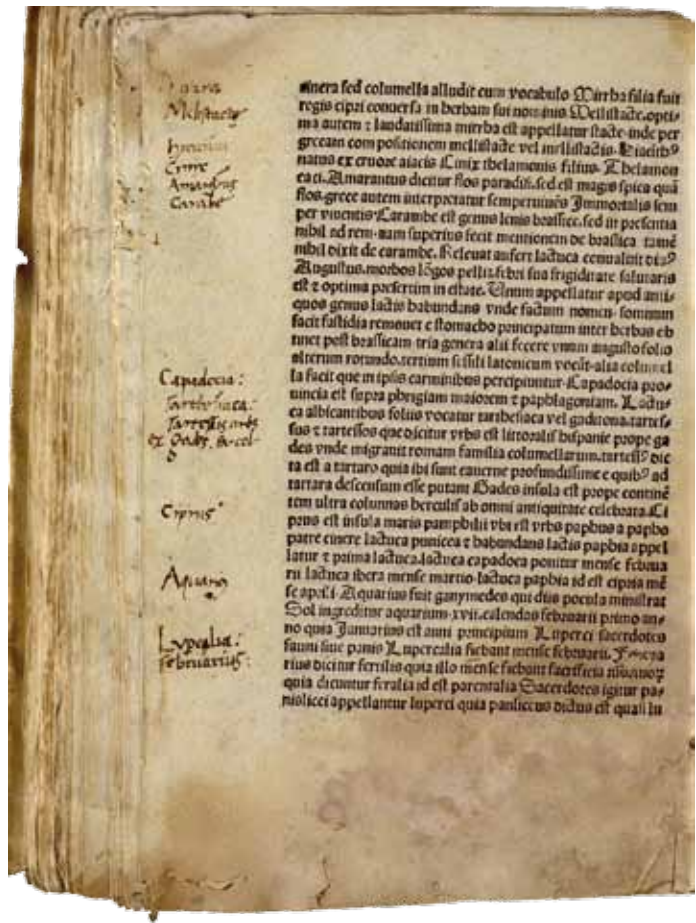 Capadocia:
Ciprus
Lupercalia:
februarius:
sinera sed columella alludit cum vocabulo Mirrha filia fuit
regis cipri conuersa in herbam sui nominis Mellistacte. opti-
ma autem ⁊ laudatissima mirrha est appellatur stacte. inde per
grecam compositionem mellistacte vel mellistactis. Hiacithꝰ
natus ex cruore aiacis Cinix thelamonis filius. Thelamon
eaci. Amarantus dicitur flos paradisi. sed est magis spica quã
flos. grece autem interpretatur semperuiuẽs Immortalis sem
per viuentis. Carambe est genus lenis brassice. sed in presentia
nihil ad rem. nam superius fecit mentionem de brassica tamẽ
nihil dixit de carambe. Releuat aufert lactuca conualuit diuꝰ
Augustus. morbos lõgos pellit. febri sua frigiditate salutaris
est ⁊ optima presertim in estate. Unum appellatur apud anti-
quos genus lactis habundans vnde factum nomen. somnum
facit fastidia remouet e stomacho principatum inter herbas ob
tinet post brassicam. tria genera alii fecere vnum angusto folio
alterum rotundo. tertium sissili latonicum vocãt. alia columel
la facit que in ipsis carminibus percipiuntur. Capadocia pro-
uincia est supra phrigiam maiorem ⁊ paphlagoniam. Lactu-
ca albicantibus foliis vocatur tarthesiaca vel gaditana. tartes-
sus ⁊ tartessos que dicitur vrbs est littoralis hispanie prope ga
des vnde migrauit romam familia columellarum. tartessꝰ dic
ta est a tartaro quia ibi sunt cauerne profundissime e quibꝰ ad
tartara descensum esse putant Gades insula est prope continẽ
tem ultra columnas herculis ab omni antiquitate celebrata. Ci
prus est insula maris pamphilii vbi est vrbs paphus a papho
patre cinere lactuca punicea ⁊ habundans lactis paphia appel
latur ⁊ prima lactuca. lactuca capadoca ponitur mense februa
rii lactuca ibera mense martio. lactuca paphia id est cipria mẽ
se aprili. Aquarius fuit ganymedes qui diis pocula ministrat
Sol ingreditur aquarium. xvii. calendas februarii primo an-
no quia Januarius est anni principium Luperci sacerdotes
fauni siue panis Lupercalia fiebant mense februarii.
rius dicitur ferialis quia illo mense fiebant sacrificia
quia dicuntur feralia id est parentalia Sacerdotes igitur pa-
nislicei appellantur luperci quia panliceus dictus est quasi lu